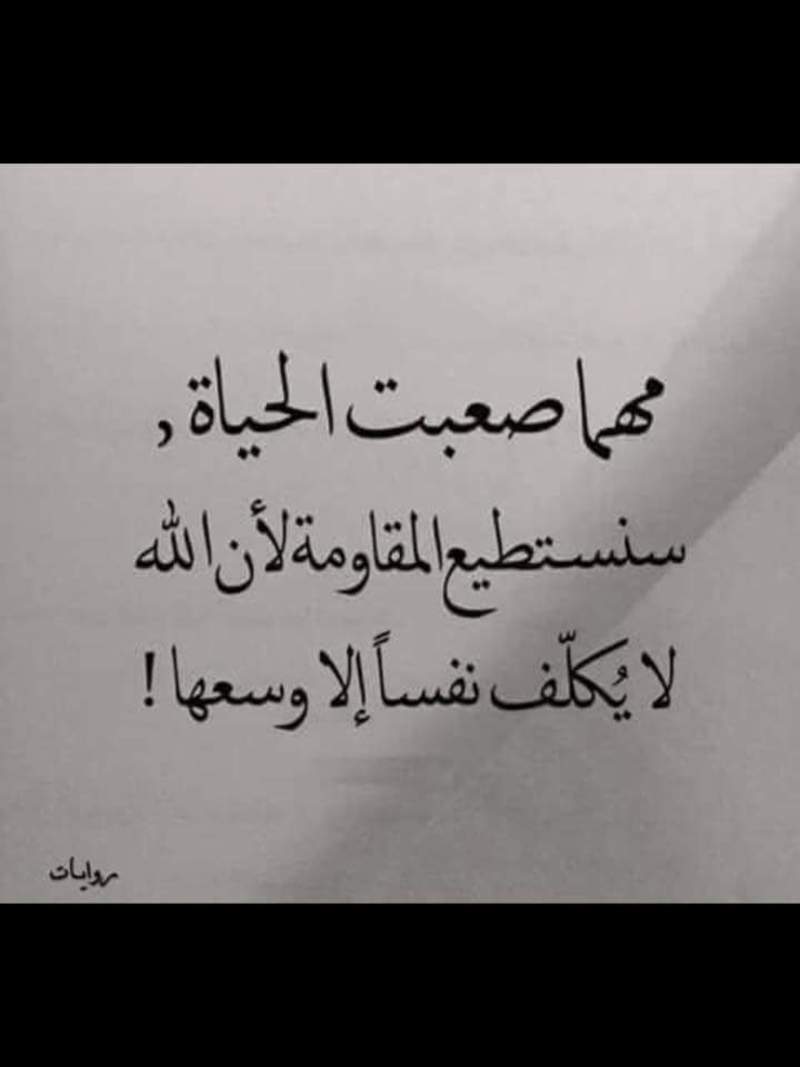 مهما صعبت الحياة ,
سنستطيع المقاومة لأن الله
لا يُكلّف نفساً إلا وسعها !
روايات